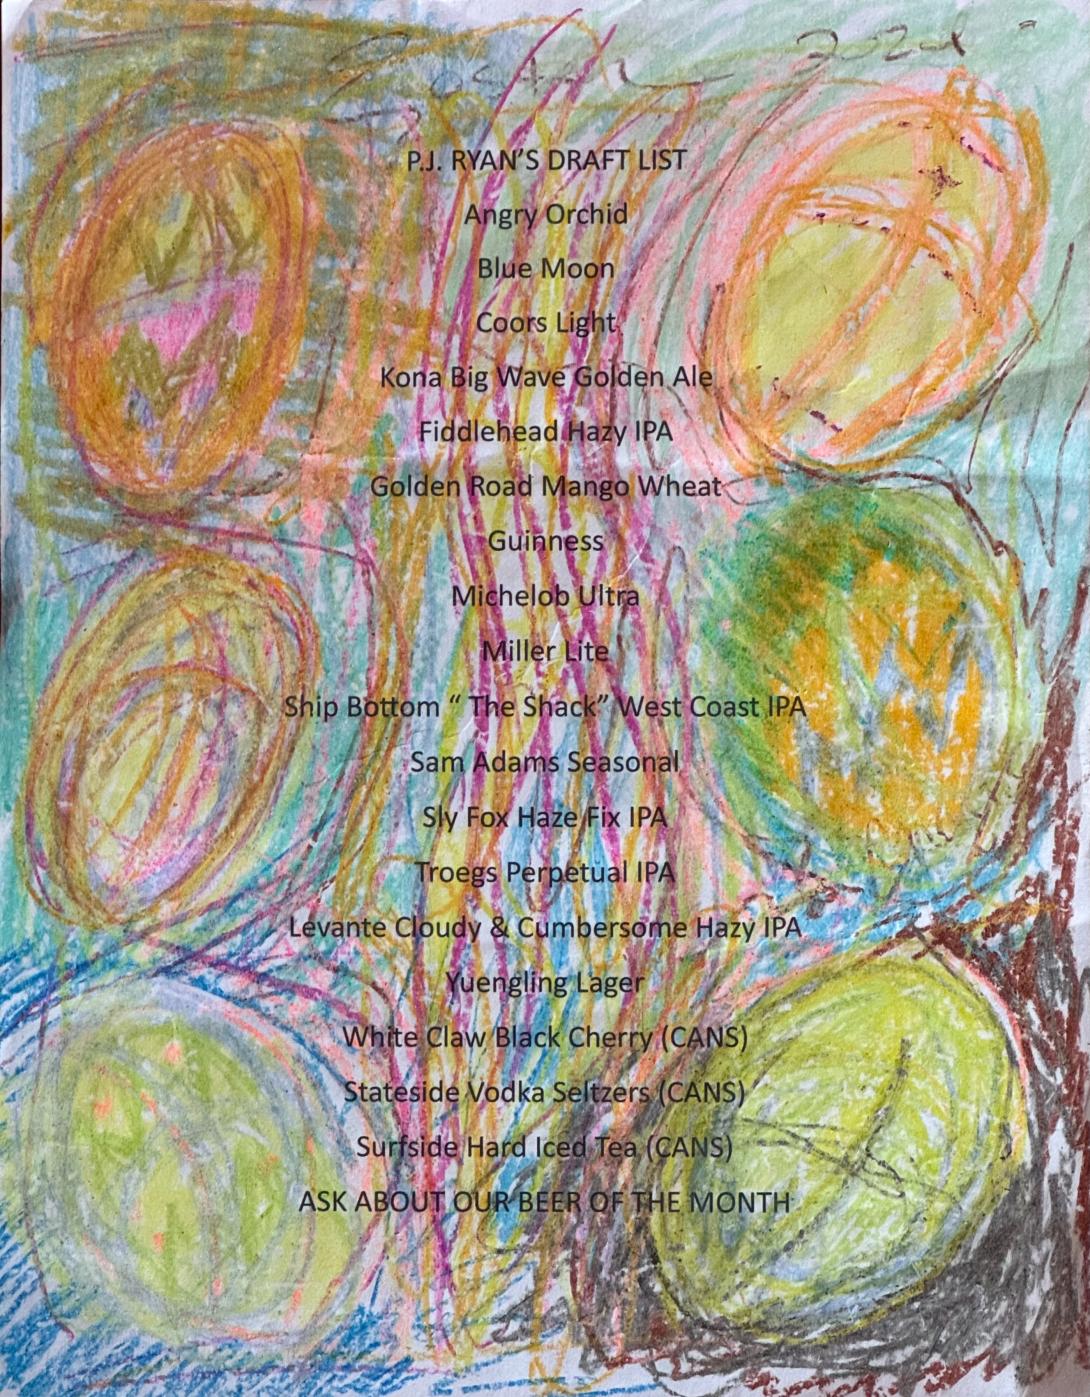 2021
P.J. RYAN'S DRAFT LIST
Angry Orchid
Blue Moon
Coors Light
Kona Big Wave Golden Ale
Fiddlehead Hazy IPA
Golden Road Mango Wheat
Guinness
Michelob Ultra
Miller Lite
Ship Bottom “ The Shack” West Coast IPA
Sam Adams Seasonal
Sly Fox Haze Fix IPA
Troegs Perpetual IPA
Levante Cloudy & Cumbersome Hazy IPA
Yuengling Lager
White Claw Black Cherry (CANS)
Stateside Vodka Seltzers (CANS)
Surfside Hard Iced Tea (CANS)
ASK ABOUT OUR BEER OF THE MONTH